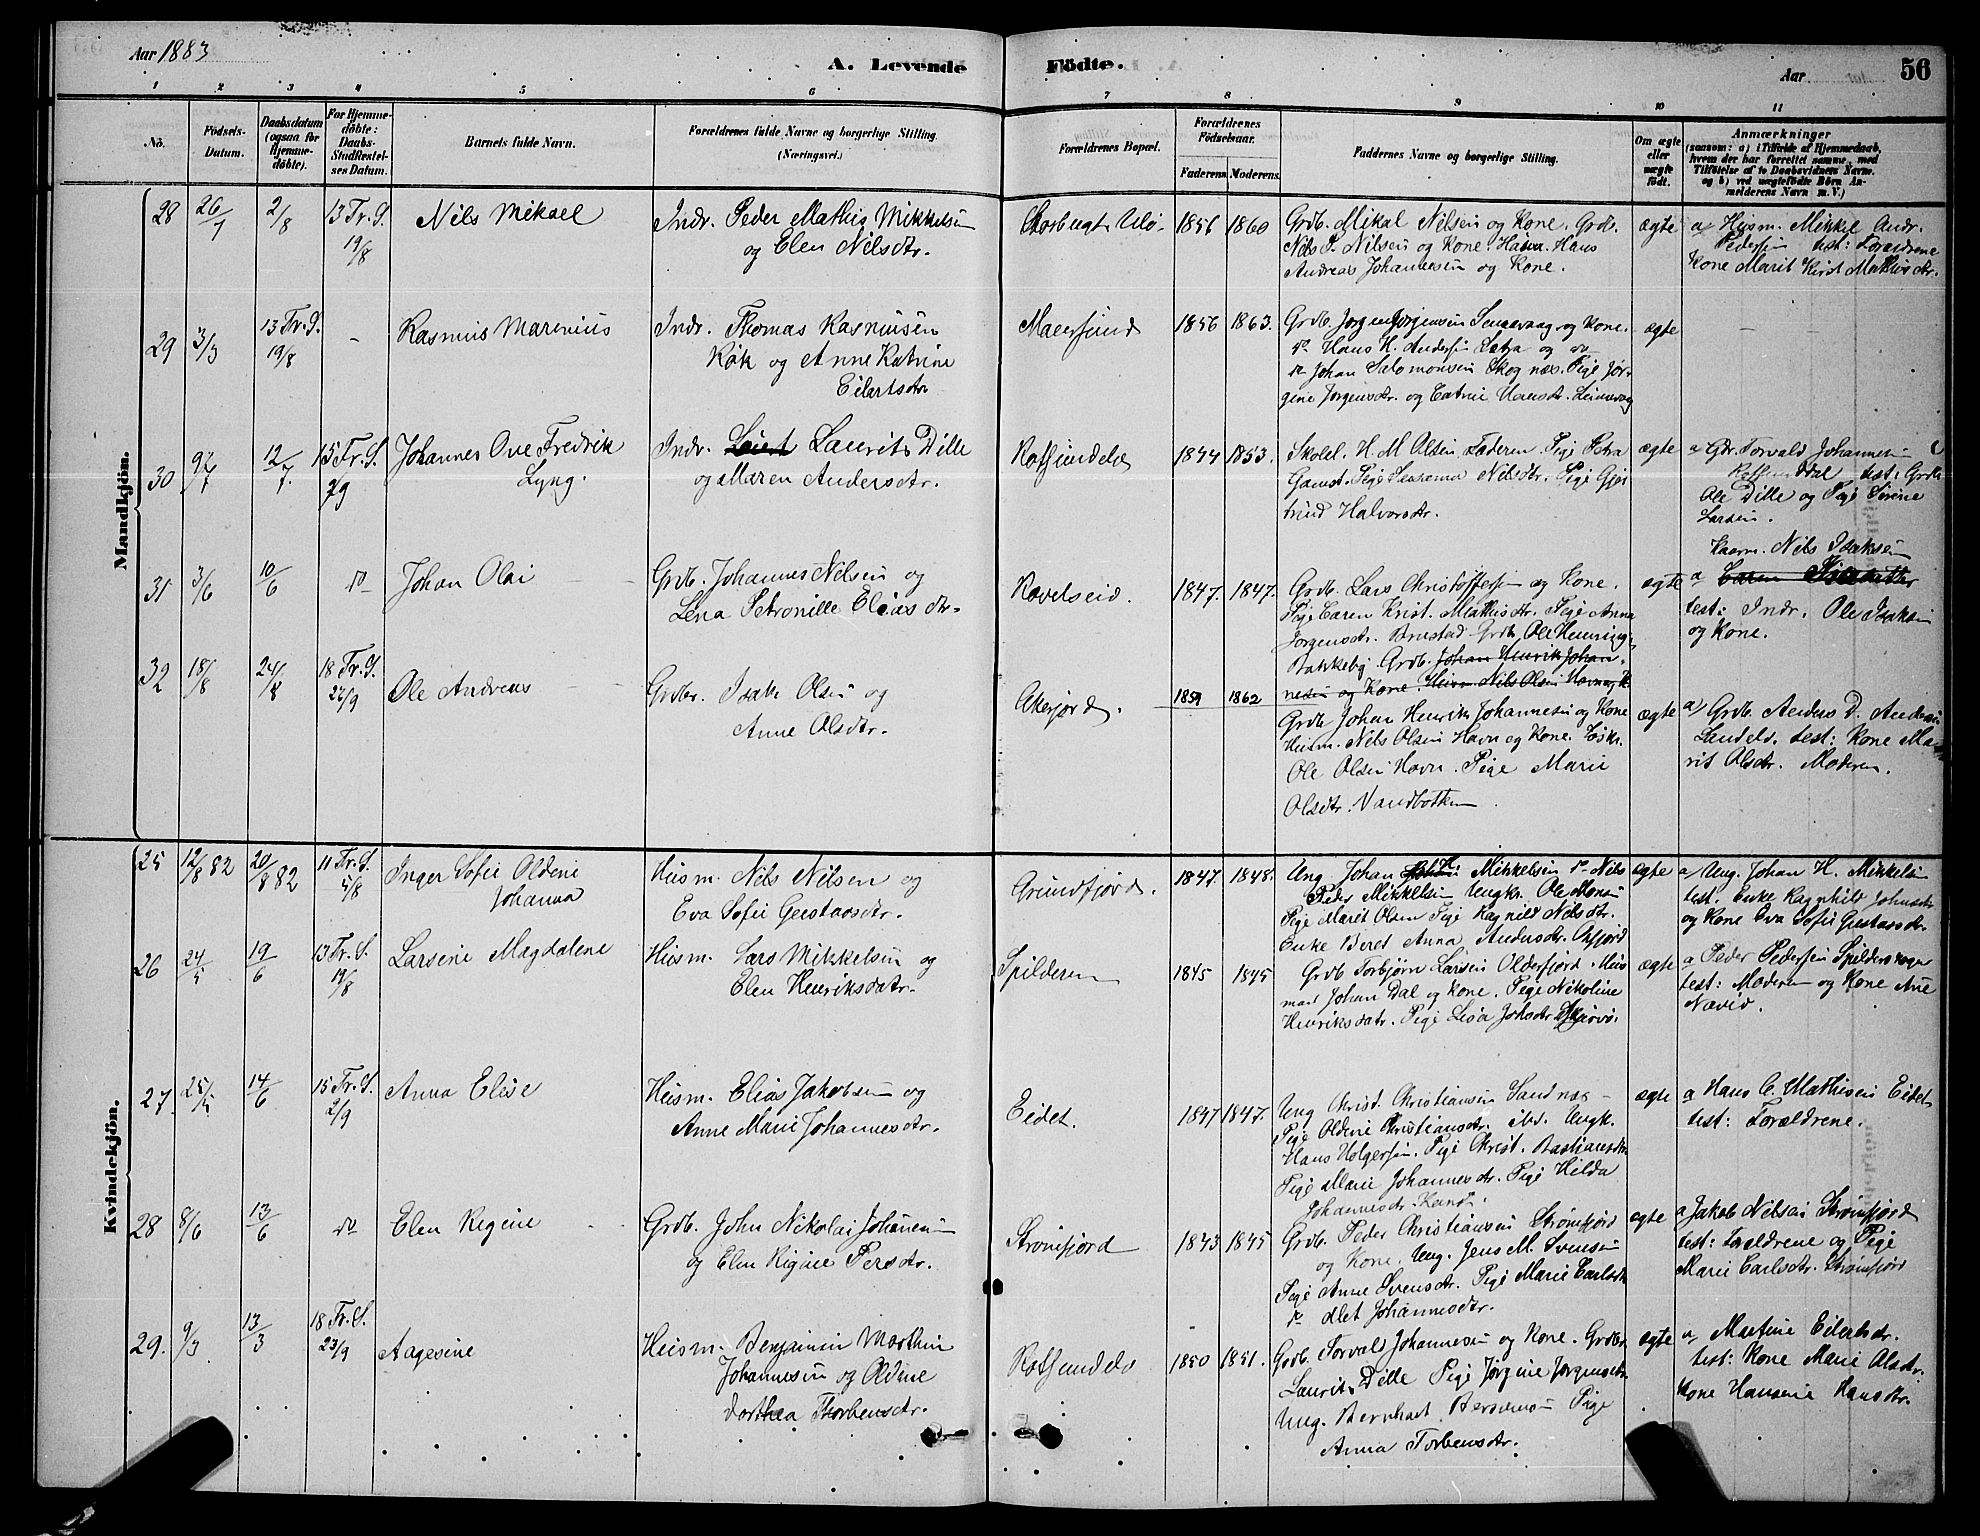 Aar 1883
A. Levende Födte.
Aar
56
1 2 3 4 5 6 7 8 9 10 11
No.
Födsels-
Datum.
Daabsdatum
(ogsaa for
Hjemme-
döbte).
For Hjemme-
döbte:
Daabs-
Stadfæstel-
ses Datum.
Barnets fulde Navn.
Forældrenes fulde Navne og borgerlige Stilling.
(Næringsvei.)
Forældrenes Bopæl.
Forældrenes
Födselsaar.
Faderens. Moderens.
Faddernes Navne og borgerlige Stilling.
Om ægte
eller
uægte
født.
Anmærkninger
(saasom: a) i Tilfælde af Hjemmedaab,
hvem der har forrettet samme, med
Tilföielse af to Daabsvidners Navne,
og b) ved uægtefödte Börn An-
melderens Navn m. V.)
Mandkjön.
28 26/7 2/8 13 Tr. S. 19/8
Nils Mikael
Indr. Peder Mathis Mikkelsen
og Elen Nilsdtr.
Storbugt Ulö. 1856 1860
Grdb. Mikal Nilsen og Kone. Grdb.
Nils P. Nilsen og Kone. Hans
Andreas Johannesen og Kone.
ægte
a Husm. Mikkel Andr.
Pedersen test: Forældrene
Kone Marit Kirst. Mathisdtr.
29 3/3 13 Tr. S. 19/8 -
Rasmus Marenius
Indr. Thomas Rasmusen
Røk og Anne Katrine
Eilertsdtr
Maersund 1856 1863.
Grdb. Jørgen Jørgensen og Kone.
do Hans H. Andersen og do
do Johan Salomonsen Skognæs. Pige Jør-
gine Jørgensdtr. og Catrine Hansdtr.
ægte
30 9/7 12/7 15 Tr. S. 2/9
Johannes Ove Fredrik
Lyng.
Indr. Laurits Dille
og Maren Andersdtr.
Rotsundelv 1844 1853.
Skolel. H. M. Olsen, Faderen. Pige Petra
Gamst. Pige Susanna Nilsdtr. Pige Gjer
trud Halvorsdtr.
ægte
a Gdr. Torvald Johannesen
test: Grdb
Ole Dille og Pige Sirine
Larsen.
31 3/6 10/6 do
Johan Olai
Grdb. Johannes Nilsen og
Lena Petronille Eliasdtr.
Ravelseid. 1847. 1847.
Grdb. Lars Christoffersen og Kone.
Pige Caren Krist. Mathisdtr. Pige Anna
Jørgensdtr. Brustad. Grdb. Ole Henrik
Bakkeby. Grdb. Johan Henrik Johan
nesen og Kone. Husm. Nils Olsen Havn og K.
ægte
Nils Isaksen
a
test: Indr. Ole Isaksen
og Kone.
32 18/8 24/8 18 Tr. S. 23/9
Ole Andreas
Grdbr. Isak Olsen og
Anne Olsdtr.
Akerjord. 1859 1862
Grdb. Johan Henrik Johannesen og Kone
Husm. Nils Olsen Havn og Kone.
Ole Olsen Havn. Pige Marie
Olsdtr. Vandbotten
ægte
a) Grdb. Anders D. Andersen
test: Kone Ma
rit Olsdtr. Moderen.
Kvindekjön.
25 12/8 82 20/8 82 11 Tr. S. 5/8
Inger Sofie Oldine
Johanna
Husm. Nils Nilsen og
Eva Sofie Gustavsdtr.
Grundfjord. 1847. 1848.
Ung. Johan H. Mikkelsen do Nils
Peder Mikkelsen Ungkr. Ole Monsen
Pige Marit Olsen Pige Ragnild Nilsdtr.
Enke Beret Anna Andersdtr.
ægte
a Ung. Johan H. Mikkelsen
test. Enke Ragnhild Johnsdtr
og Kone Eva Sofie Gustavsdtr.
26 24/5 19/6 13 Tr. S. 19/8
Larsine Magdalene
Husm. Lars Mikkelsen og
Elen Henriksdatr.
Spilderen 1845 1845
Grdb Torbjørn Larsen Olderfjord. Hus
man Johan Dal og Kone. Pige Nikoline
Henriksdatr. Pige Lisa Johsdtr. Skjærvö.
ægte
a Peder Pedersen
test: Moderen og Kone Ane
Nævid.
27. 25/5 14/6 15 Tr. S. 2/9
Anna Elise
Husm. Elias Jakobsen og
Anne Marie Johannesdtr.
Eidet. 1847 1847.
Ung Christ. Christiansen Sandnæs
Pige Oldine Christiansdtr. ibd. Ungk.
Hans Holgersen. Pige Christ. Bastiansdtr
Pige Marie Johannesdtr. Pige Hilda
Johannesdtr.
ægte
a Hans C. Mathisen Eidet
test: Forældrene.
28 8/6 13/6 do
Elen Regine
Grdb. John Nikolai Johansen
og Elen Rigine Persdtr.
Strømfjord 1843 1845
Grdb. Peder Christiansen Strømfjord
og Kone. Ung. Jens M. Svensen
Pige Anne Svensdtr. Pige Marie Carlsdtr
do Johannesdtr.
ægte
a Jakob Nilsen Strømfjord
test: Forældrene og Pige
Marie Carlsdtr. Strömfjord
29. 9/3 13/3 18 Tr. S. 23/9
Aagesine
Husm. Benjamin Marthin
Johannesen og Oldine
Dorthea Thorbensdtr.
Rotsundelv 1850 1851.
Grdb. Torvald Johannesen og Kone. Grdbr
Laurits Dille Pige Jørgine Jørgensdtr.
Ung. Bernhart Pige
Anna Torbensdtr.
ægte
a Martine Eilertsdtr.
test: Kone Marie Olsdtr.
Kone Hansine Hansdtr.